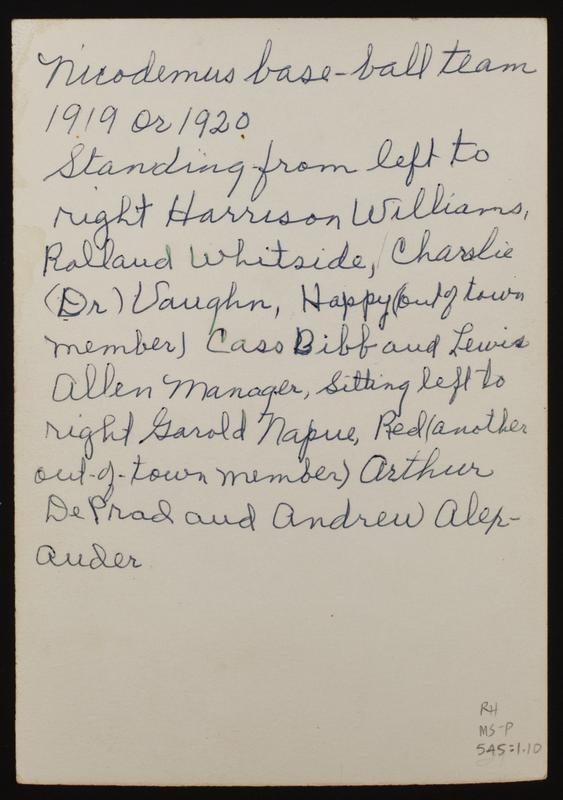 Nicodemus base-ball team
1919 or 1920
Standing from left to
right Harrison Williams,
Rolland Whitside, Charslie
(Dr) Vaughn, Happy (out of town
member) Cass Bibb and Lewis
Allen Manager, Sitting left to
right Garold Napue, Red (another
out-of-town member) Arthur
DePrad and Andrew Alex-
ander
RH
MS-P
545:1.10